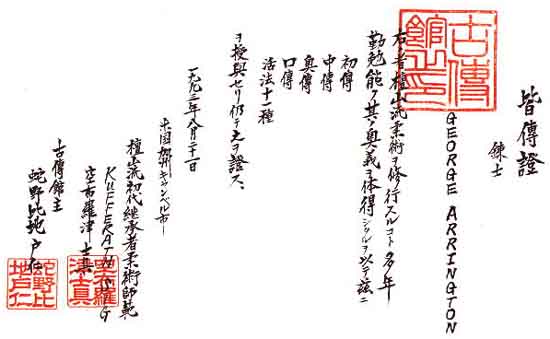 皆傳證
錬士
GEORGE ARRINGTON
古傳館之印
右者檀山流柔術ヲ修行スルコト多年
勤勉能ク其ノ奥義ヲ体得シタルヲ以テ茲ニ
初傳
中傳
奥傳
口傳
活法十一種
ヲ授與セリ仍テ之ヲ證ス
八月二十一日
米国加州キャンベル市
檀山流初代継承者柔術師範
KUFFERATH SIG
古傳館主
蛇野比地戸仁
蛇野比地戸仁